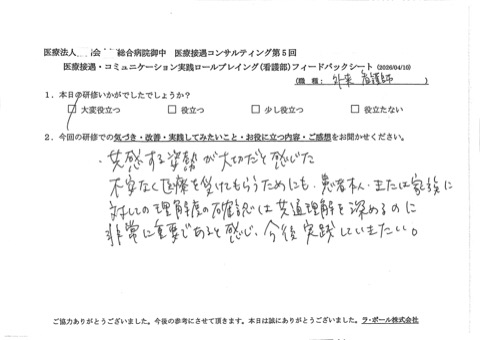 医療法人 会 総合病院御中 医療接遇コンサルティング第5回
医療接遇・コミュニケーション実践ロールプレイング(看護部)フィードバックシート (2026/04/10)
(職 種: 外来 看護師 )
1.本日の研修いかがでしたでしょうか?
□ 大変役立つ □ 役立つ □ 少し役立つ □ 役立たない
2.今回の研修での気づき・改善・実践してみたいこと・お役に立つ内容・ご感想をお聞かせください。
・共感する姿勢が大切だと感じた
不安なく医療を受けてもらうためにも、患者本人、または家族に
対しての理解度の確認は共通理解を深めるのに
非常に重要であると感じ、今後実践していきたい。
ご協力ありがとうございました。今後の参考にさせて頂きます。本日は誠にありがとうございました。ラ・ポール株式会社